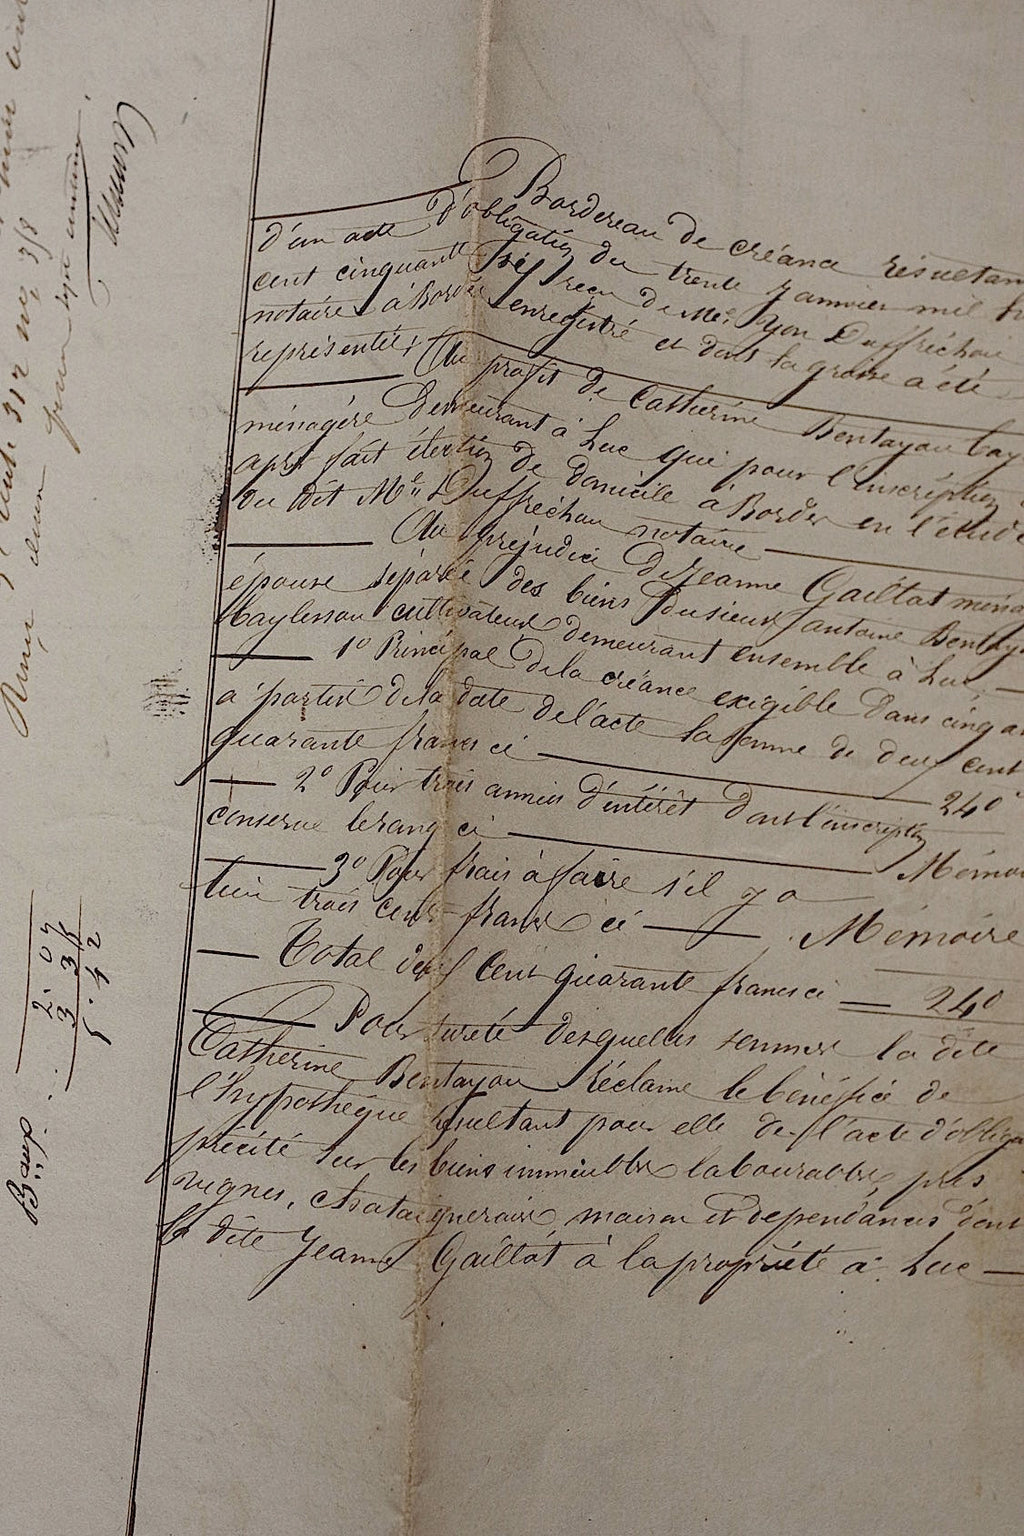 Bordereau de créance résultan
d'un acte d'obligation du trente Janvier mil h
cent cinquante six reçu de Me Yon Duffréchou
notaire à Bordes enregistré et dont la grosse a été
représentée,
Au profit de Catherine Bentayou Cay
ménagère demeurant à Luc qui pour l'inscription
après fait élection de domicile à Bordes en l'étude
du dit Me Duffréchou notaire
Au préjudice de Jeanne Gaillat ména
épouse séparée des biens du sieur antoine Bentay
cultivateur demeurant ensemble à Luc,
1o Principal de la créance exigible dans cinq a
à partir de la date de l'acte la somme de deux cent
quarante francs ci 240
2o Pour trois années d'intérêt dont l'inscription
conserve le rang ci Mémoi
3o Pour frais à faire s'il y a
trois cents francs ci Mémoire
Total deux Cent quarante francs ci 240
Pour sureté desquelles sommes la dite
Catherine Bentayou réclame le bénéfice de
l'hypothèque résultant pour elle de l'acte d'obliga
précité sur les biens immeubles labourables, prés
vignes, chataigneraie maison et dépendances dont
la dite Jeanne Gaillat à la propriété à Luc
2. 07
3 35
5. 42